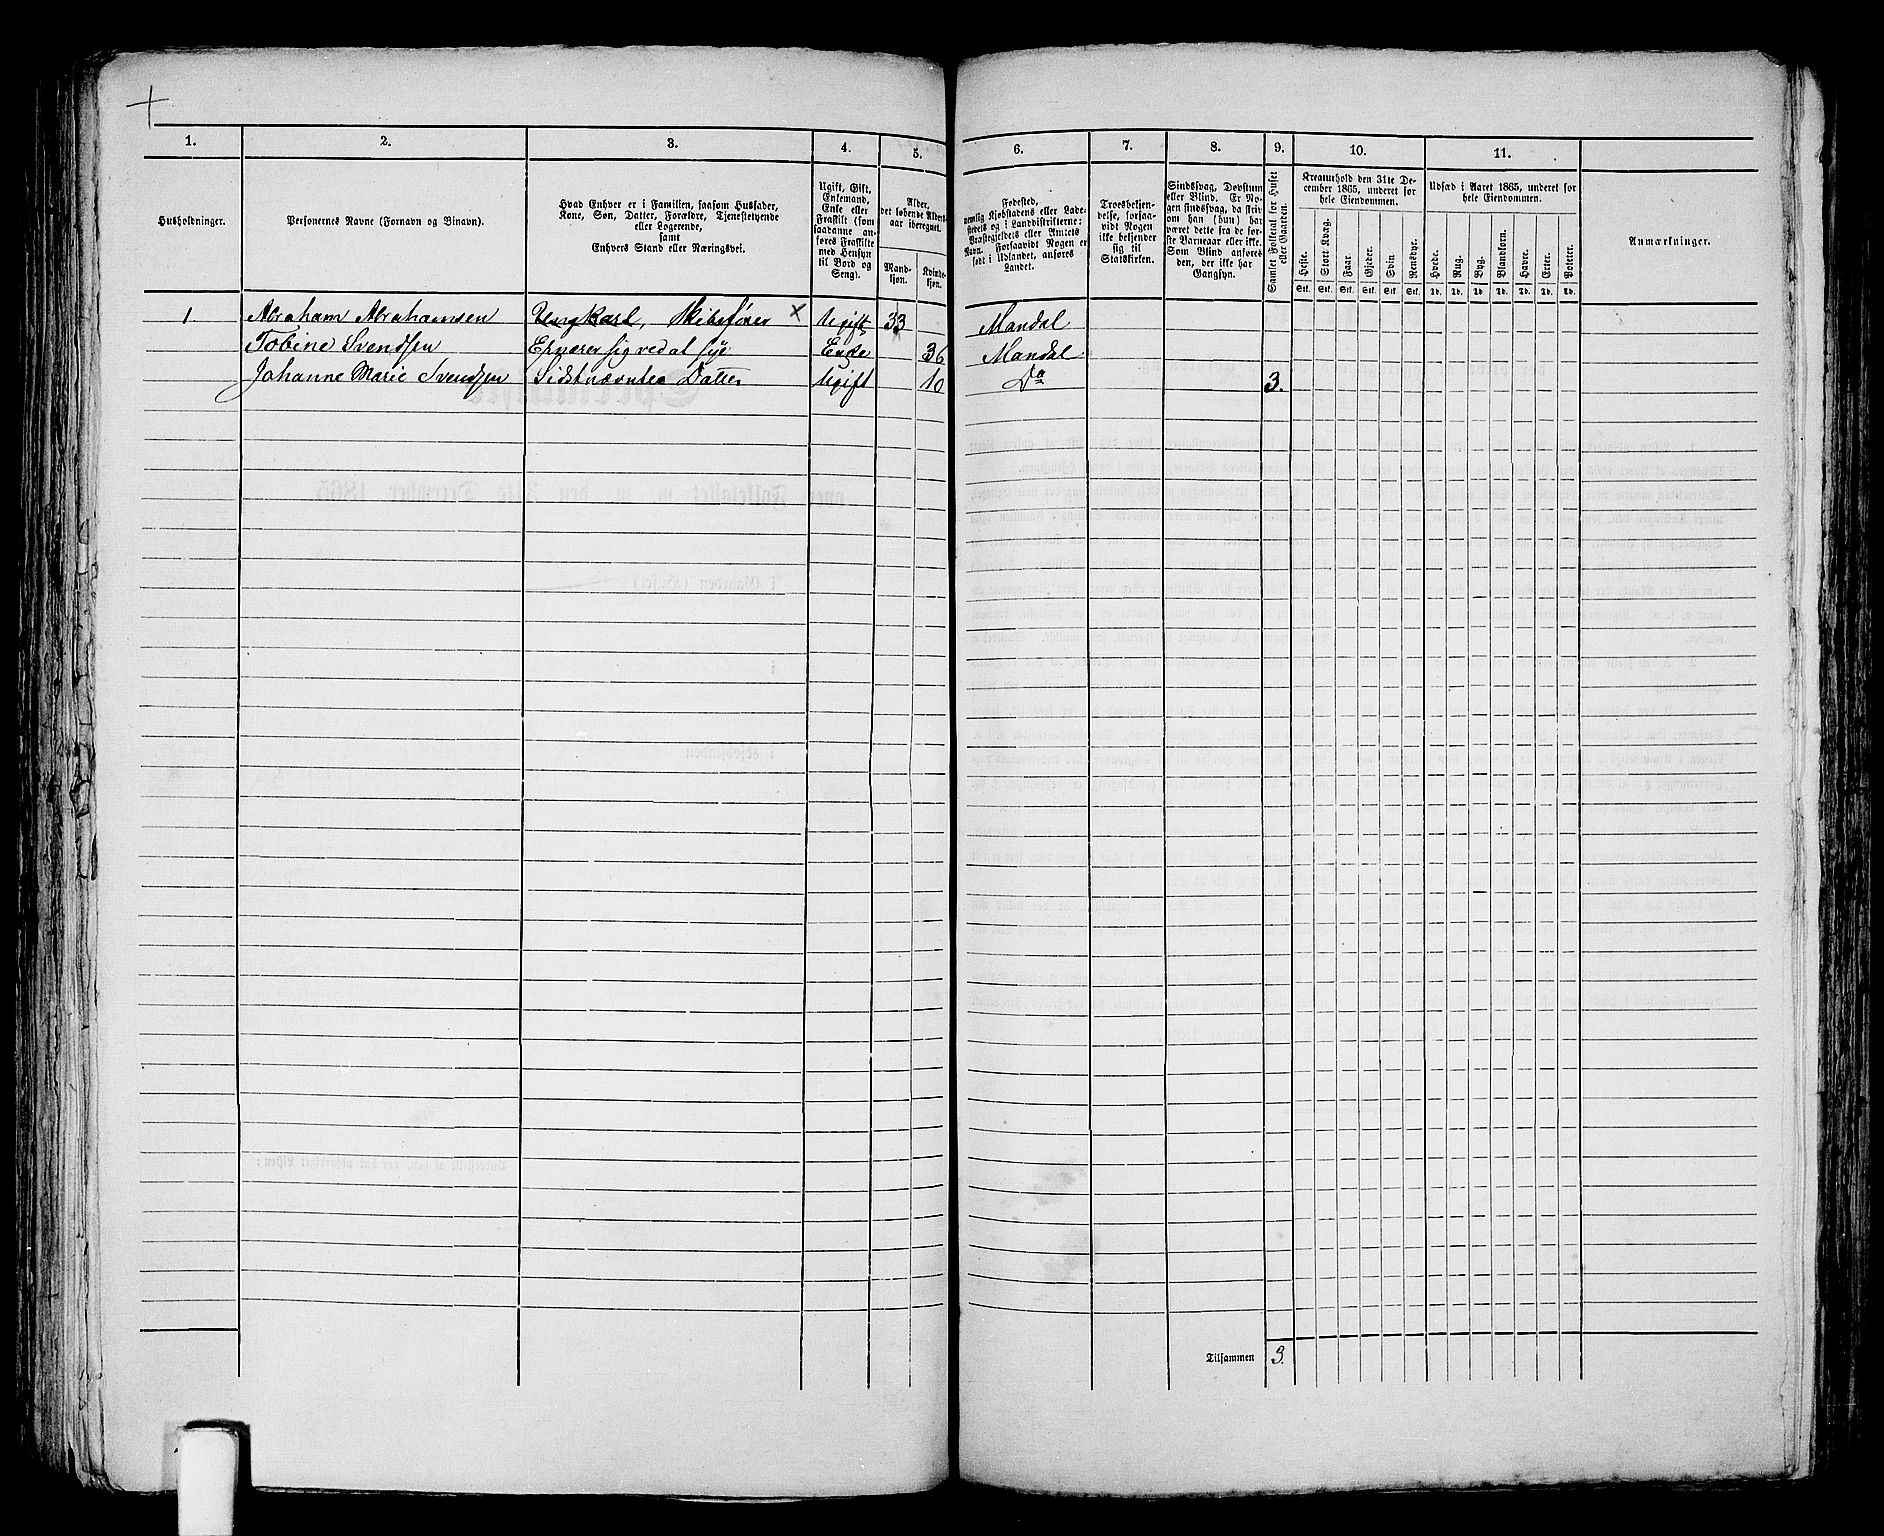 1. 2. 3. 4. 5. 6. 7. 8. 9. 10. 11.
Husholdninger.
Personernes Navne (Fornavn og Binavn).
Hvad Enhver er i Familien, saasom Husfader,
Kone, Søn, Datter, Forældre, Tjenestetyende
eller Logerende,
samt
Enhvers Stand eller Næringsvei.
Ugift, Gift,
Enkemand,
Enke eller
Fraskilt (som
saadanne an-
føres Fraskilte
med Hensyn
til Bord og
Seng).
Alder,
det løbende Alders-
aar iberegnet.
Mand-
kjøn.
Kvinde-
kjøn.
Fødested,
nemlig Kjøbstadens eller Lade-
stedets og i Landdistrikterne:
Præstegjeldets eller Amtets
Navn. Forsaavidt Nogen er
født i Udlandet, anføres
Landet.
Troesbekjen-
delse, forsaa-
vidt Nogen
ikke bekjender
sig til
Statskirken.
Sindssvag, Døvstum
eller Blind. Er No-
gen sindssvag, da skriv
om han (hun) har
været dette fra de før-
ste Barneaar eller ikke.
Som Blind anføres
den, der ikke har
Gangsyn.
Samlet Folketal for Huset
eller Gaarden.
Kreaturhold den 31te De-
cember 1865, underet for
hele Eiendommen.
Heste. Stort Kvæg. Faar. Gjeder. Svin. Rensdyr.
Stk. Stk. Stk. Stk. Stk. Stk.
Udsæd i Aaret 1865, underet for
hele Eiendommen.
Hvede. Rug. Byg. Blandkorn. Havre. Erter. Poteter.
Td. Td. Td. Td. Td. Td. Td.
Anmærkninger.
1 Abraham Abrahamsen Ungkarl, Skibsfører × Ugift 33 Mandal
Tobine Svendsen Ernærer sig ved at sye Enke 36 Mandal
Johanne Marie Svendsen Sidstnævntes Datter Ugift 10 Do 3.
Tilsammen 3.